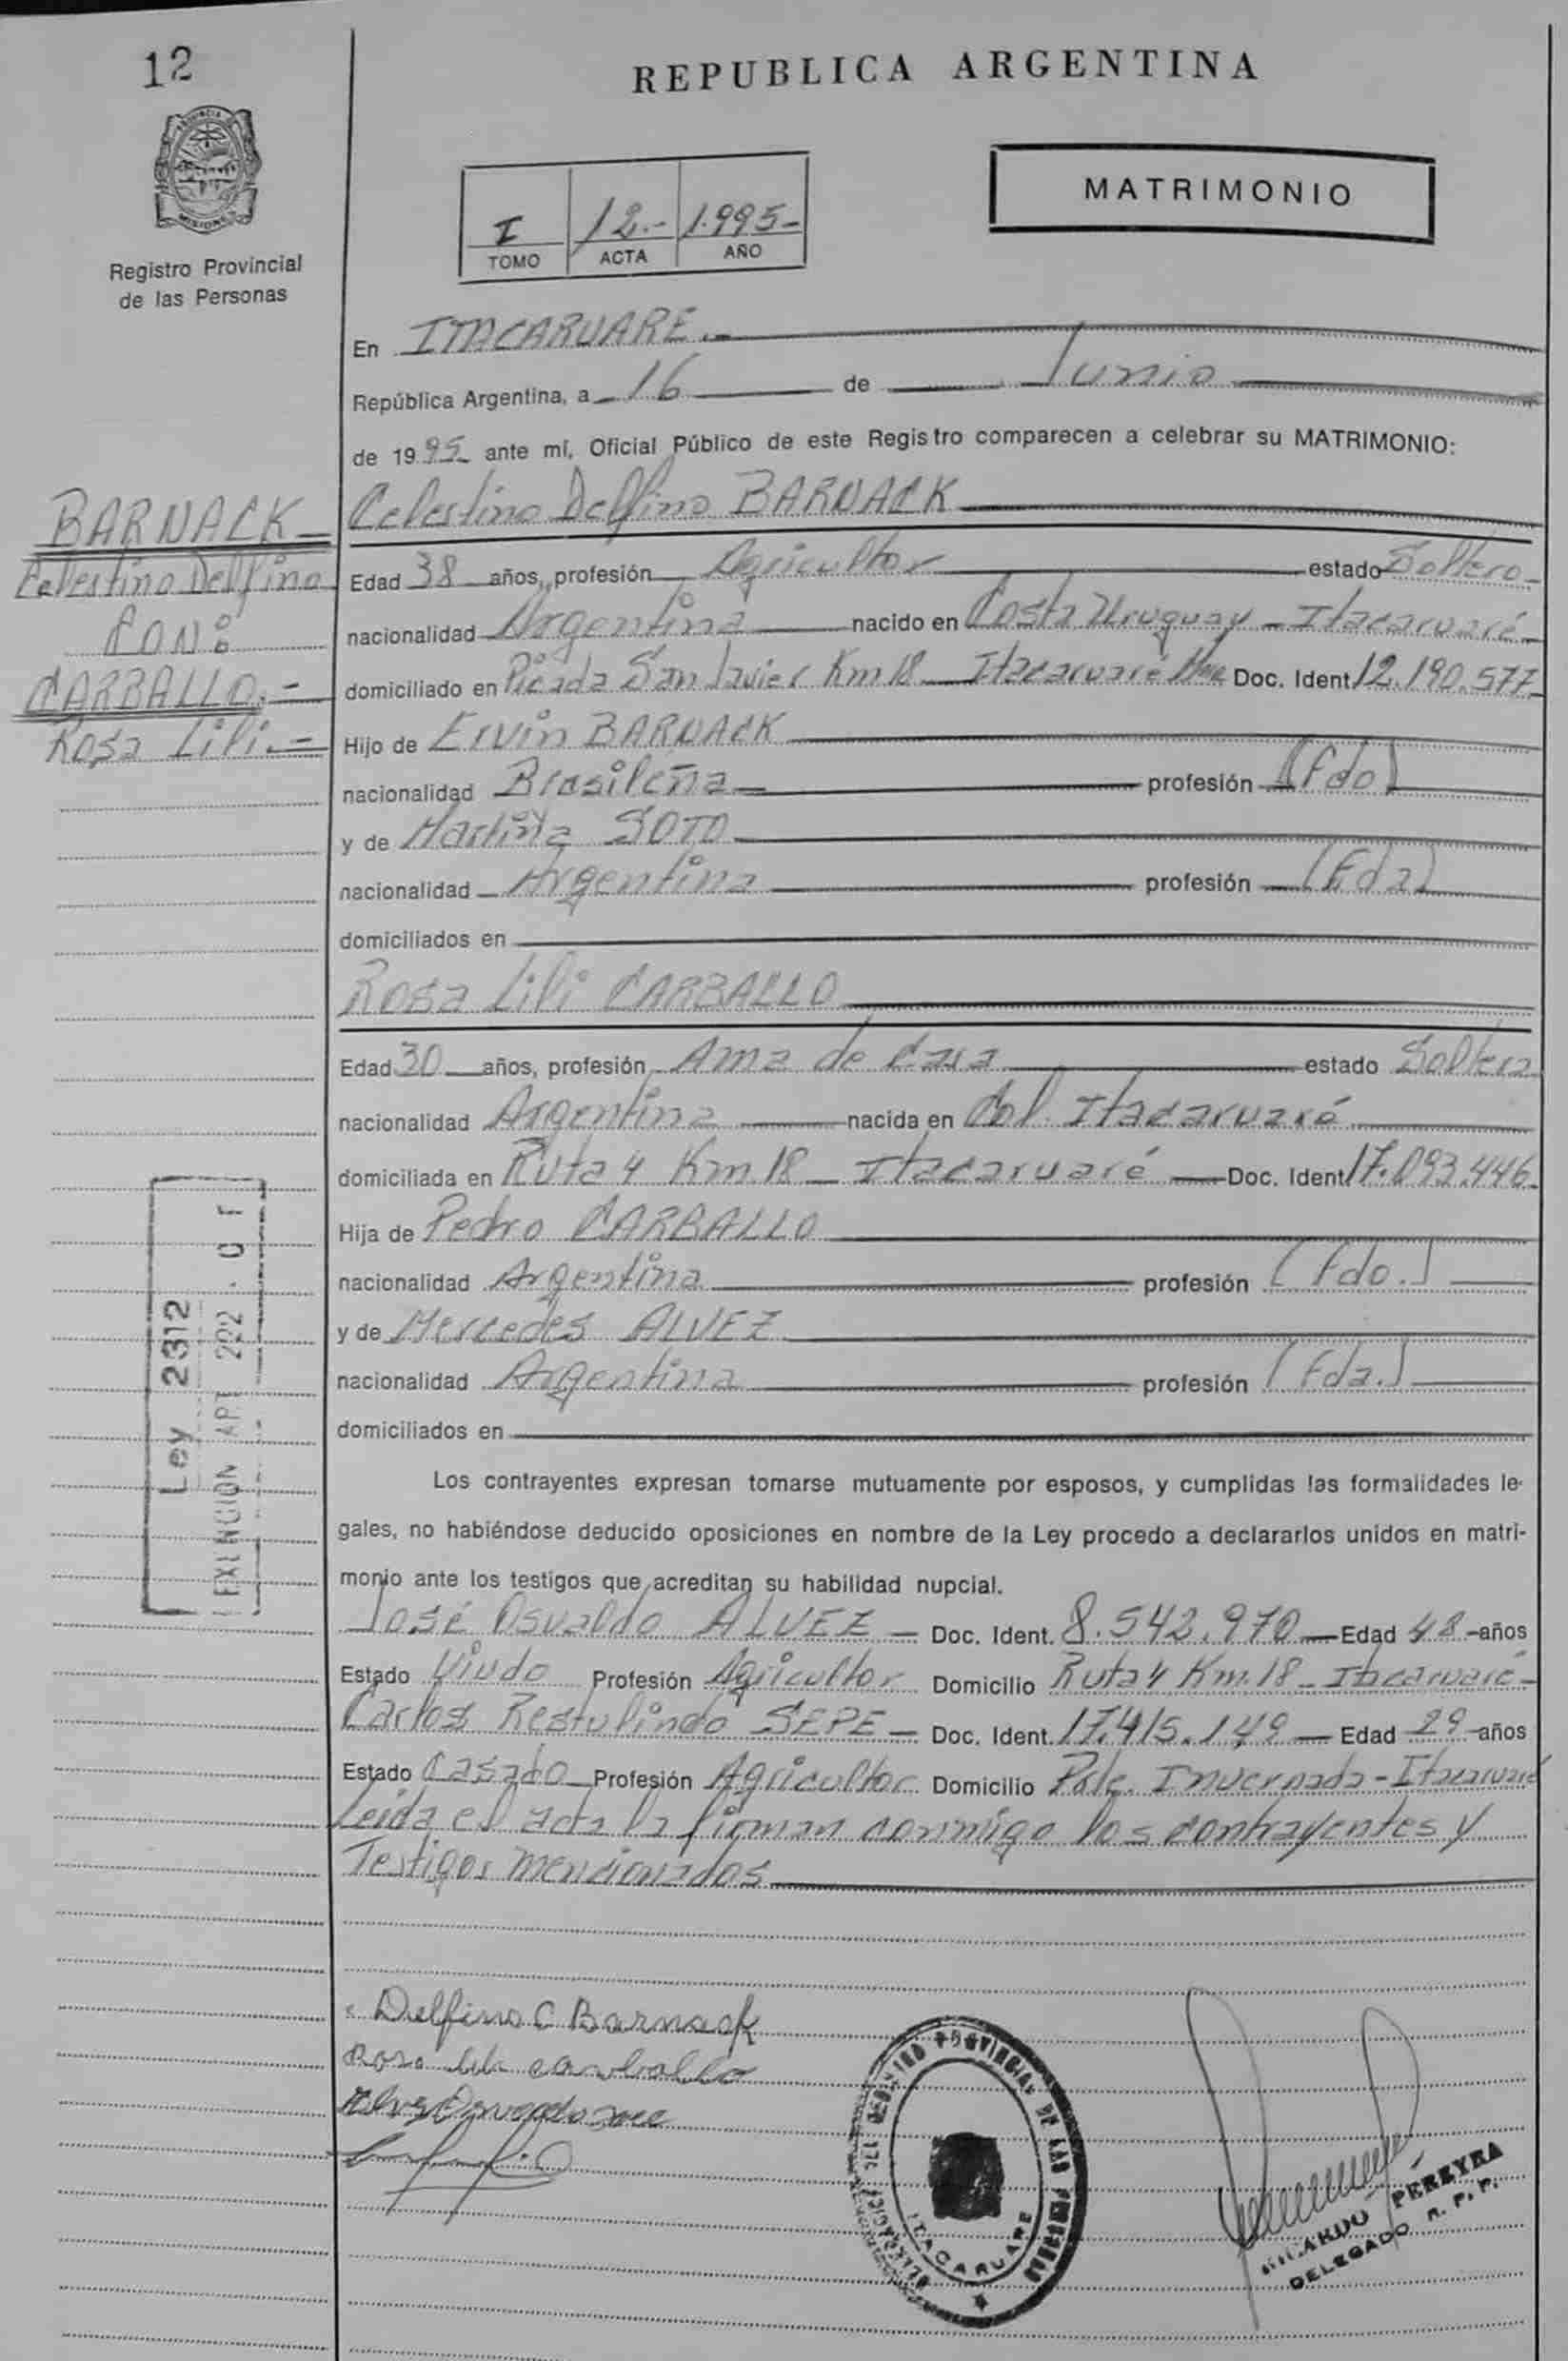 12
REPUBLICA ARGENTINA
PROVINCIA
MISIONES
Registro Provincial
de las Personas
I 12.- 1.995-
TOMO ACTA AÑO
MATRIMONIO
En ITACARUARE.-
República Argentina, a 16 de Junio
de 1995 ante mí, Oficial Público de este Registro comparecen a celebrar su MATRIMONIO:
BARNACK
Celestino Delfino
CON:
CARBALLO.-
Rosa Lili.-
Celestino Delfino BARNACK
Edad 38 años, profesión Agricultor estado Soltero-
nacionalidad Argentina nacido en Costa Uruguay - Itacaruaré
domiciliado en Picada San Javier Km 18 Itacaruaré Doc. Ident 12.190.577
Hijo de Ervin BARNACK
nacionalidad Brasileña profesión (Fdo)
y de Martina SOTO
nacionalidad Argentina profesión (Fda)
domiciliados en
Rosa Lili CARBALLO
Edad 30 años, profesión Ama de Casa estado Soltera
nacionalidad Argentina nacida en Col. Itacaruaré
domiciliada en Ruta 4 Km.18 - Itacaruaré Doc. Ident 17.093.446
Hija de Pedro CARBALLO
nacionalidad Argentina profesión (Fdo.)
y de Mercedes ALVEZ
nacionalidad Argentina profesión (Fda.)
domiciliados en
Ley 2312
EXENCION ART 222 . C F
Los contrayentes expresan tomarse mutuamente por esposos, y cumplidas las formalidades le-
gales, no habiéndose deducido oposiciones en nombre de la Ley procedo a declararlos unidos en matri-
monio ante los testigos que acreditan su habilidad nupcial.
José Osvaldo ALVEZ - Doc. Ident. 8.542.970 Edad 48 años
Estado Viudo Profesión Agricultor Domicilio Ruta 4 Km.18 - Itacaruaré-
Carlos Restulindo SEPE - Doc. Ident. 17.415.149 Edad 29 años
Estado Casado Profesión Agricultor Domicilio Pje. Invernada - Itacaruaré
Leída el acta la firman conmigo los contrayentes y
Testigos mencionados
Delfino C Barnack
Rosa Lili carballo
PROVINCIAL DE LAS PERSONAS
ITACARUARE
RICARDO PEREYRA
DELEGADO R. P. P.